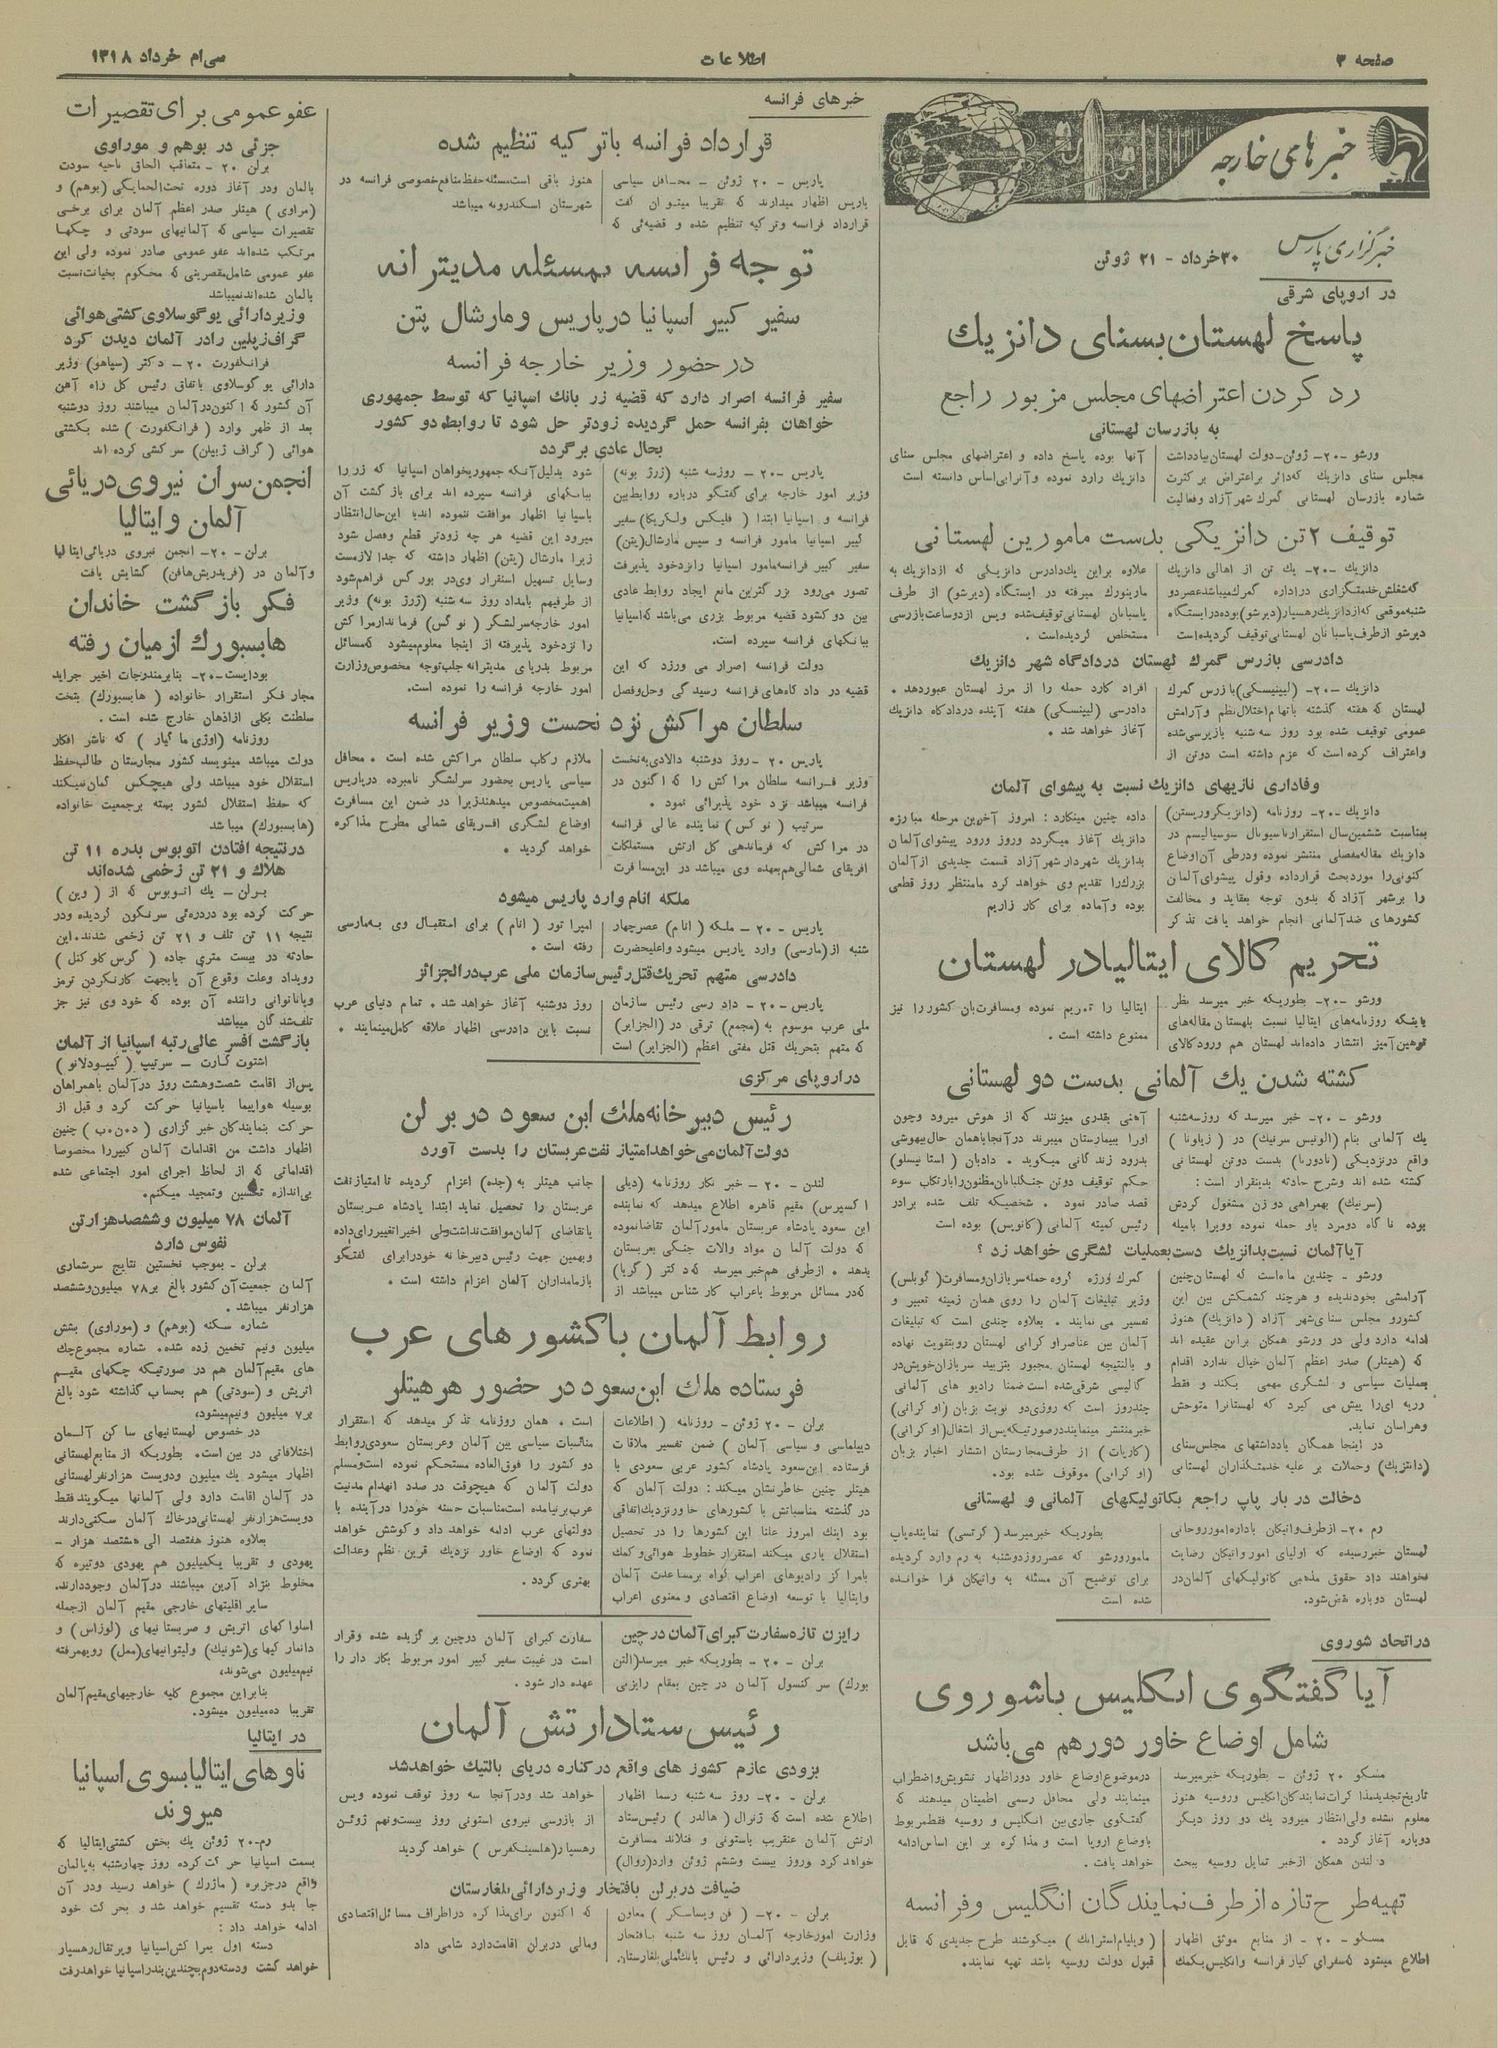 صفحه ۳
اطلاعات
سی‌ام خرداد ۱۳۱۸
خبرهای خارجه
خبرگزاری پارس
۳۰ خرداد - ۲۱ ژوئن
در اروپای شرقی
پاسخ لهستان بسنای دانزیك
رد کردن اعتراضهای مجلس مزبور راجع
به بازرسان لهستانی
ورشو -۲۰- ژوئن- دولت لهستان بیادداشت
مجلس سنای دانزیك که دائر براعتراض بر کثرت
شماره بازرسان لهستانی گمرك شهر آزاد وفعالیت
آنها بوده پاسخ داده و اعتراضهای مجلس سنای
دانزیك رارد نموده و آنرا بی‌اساس دانسته است
توقیف ۲ تن دانزیکی بدست مامورین لهستانی
دانزیك -۲۰- یك تن از اهالی دانزیك
که شغلش خدمتگزاری دراداره گمرك میباشد عصر دو
شنبه موقعی که ازدانزیك رهسپار (دیرشو) بوده درایستگاه
دیرشو ازطرف پاسبانان لهستانی توقیف گردیده است
علاوه براین یك دادرس دانزیکی که ازدانزیك به
مارینورك میرفته در ایستگاه (دیرشو) از طرف
پاسبانان لهستانی توقیف شده وپس ازدوساعت بازرسی
مستخلص گردیده است .
دادرسی بازرس گمرك لهستان دردادگاه شهر دانزیك
دانزیك -۲۰- (لیپنیسکی) بازرس گمرك
لهستان که هفته گذشته باتهام اختلال نظم و آرامش
عمومی توقیف شده بود روز سه شنبه بازپرسی شده
واعتراف کرده است که عزم داشته است دوتن از
افراد کارد حمله را از مرز لهستان عبوردهد .
دادرسی (لیپنسکی) هفته آینده دردادگاه دانزیك
آغاز خواهد شد .
وفاداری نازیهای دانزیك نسبت به پیشوای آلمان
دانزیك -۲۰- روزنامه (دانزیگرورپستن)
بمناسبت ششمین سال استقرار ناسیونال سوسیالیسم در
دانزیك مقاله مفصلی منتشر نموده ودرطی آن اوضاع
کنونی را موردبحث قرارداده وقول پیشوای آلمان
را برشهر آزاد که بدون توجه بعقاید و مخالفت
کشورهای ضدآلمانی انجام خواهد یافت تذکر
داده چنین مینگارد : امروز آخرین مرحله مبارزه
دانزیك آغاز میگردد وروز ورود پیشوای آلمان
بدانزیك شهردار شهر آزاد قسمت جدیدی از آلمان
بزرك را تقدیم وی خواهد کرد مامنتظر روز قطعی
بوده و آماده برای کار زاریم
تحریم کالای ایتالیا در لهستان
ورشو -۲۰- بطوریکه خبر میرسد نظر
باینکه روزنامه‌های ایتالیا نسبت بلهستان مقاله‌های
توهین آمیز انتشار داده‌اند لهستان هم ورود کالای
ایتالیا را تحریم نموده ومسافرت بآن کشوررا نیز
ممنوع داشته است .
کشته شدن یك آلمانی بدست دو لهستانی
ورشو -۲۰- خبر میرسد که روز سه شنبه
یك آلمانی بنام (الونیس سرنیك) در (زیلونا)
واقع درنزدیکی (نادورنا) بدست دوتن لهستانی
کشته شده اند وشرح حادثه بدینقرار است :
(سرنیك) بهمراهی دو زن مشغول گردش
بوده ناگاه دومرد باو حمله نموده وویرا بامیله
آهنی بقدری میزنند که از هوش میرود وچون
اورا ببیمارستان میبرند در آنجا باهمان حال بیهوشی
بدرود زندگانی میگوید . دادبان (استانیسلو)
حکم توقیف دوتن جنگلبانان مظنون را بارتکاب سوء
قصد صادر نمود . شخصیکه تلف شده برادر
رئیس کمیته آلمانی (کانویس) بوده است
آیا آلمان نسبت بدانزیك دست بعملیات لشگری خواهد زد ؟
ورشو - چندین ماه است که لهستان چنین
آرامشی بخود ندیده و هرچند کشمکش بین این
کشورو مجلس سنای شهر آزاد (دانزیك) هنوز
ادامه دارد ولی در ورشو همگان براین عقیده اند
که (هیتلر) صدر اعظم آلمان خیال ندارد اقدام
بعملیات سیاسی و لشگری مهمی بکند و فقط
رویه ای را پیش می گیرد که لهستانرا متوحش
وهراسان نماید.
در اینجا همگان یادداشتهای مجلس سنای
(دانتزیك) وحملات بر علیه خدمتگذاران لهستانی
گمرك وروزه گروه حمله سربازان ومسافرت (گوبلس)
وزیر تبلیغات آلمان را روی همان زمینه تعبیر و
تفسیر می نمایند . بعلاوه چندی است که تبلیغات
آلمان بین عناصر او کرانی لهستان روبتقویت نهاده
و بالنتیجه لهستان مجبور بتزیید سربازان خویش در
گالیسی شرقی شده است ضمنا رادیو های آلمانی
چندروز است که روزی دو نوبت بزبان (او کرانی)
خبر منتشر مینمایند درصورتیکه پس از اشغال (او کرانی)
(کارپات) از طرف مجارستان انتشار اخبار بزبان
(او کرانی) موقوف شده بود.
دخالت در بار پاپ راجع بکاتولیکهای آلمانی و لهستانی
رم ۲۰- ازطرف واتیکان باداره امور روحانی
لهستان خبررسیده که اولیای امور واتیکان رضایت
نخواهند داد حقوق مذهبی کاتولیکهای آلمان در
لهستان دوباره نقض شود.
بطوریکه خبرمیرسد (کرتسی) نماینده پاپ
مامورورشو که عصر روز دوشنبه به رم وارد گردیده
برای توضیح آن مسئله به واتیکان فرا خوانده
شده است
در اتحاد شوروی
آیا گفتگوی انگلیس باشوروی
شامل اوضاع خاور دورهم می‌باشد
مسکو ۲۰ ژوئن - بطوریکه خبر میرسد
تاریخ تجدید مذاکرات نمایندگان انگلیس وروسیه هنوز
معلوم نشده ولی انتظار میرود یك دو روز دیگر
دوباره آغاز گردد .
د لندن همگان از خبر تمایل روسیه ببحث
درموضوع اوضاع خاور دور اظهار تشویش واضطراب
مینمایند ولی محافل رسمی اطمینان میدهند که
گفتگوی جاری بین انگلیس و روسیه فقط مربوط
باوضاع اروپا است و مذاکره بر این اساس ادامه
خواهد یافت .
تهیه طرح تازه از طرف نمایندگان انگلیس وفرانسه
مسکو - ۲۰ - از منابع موثق اظهار
اطلاع میشود که سفرای کبار فرانسه وانگلیس بکمك
(ویلیام استرانك) میکوشند طرح جدیدی که قابل
قبول دولت روسیه باشد تهیه نمایند.
خبرهای فرانسه
قرارداد فرانسه باترکیه تنظیم شده
پاریس - ۲۰ ژوئن - محافل سیاسی
پاریس اظهار میدارند که تقریبا میتوان گفت
قرارداد فرانسه وترکیه تنظیم شده و قضیه‌ئی که
هنوز باقی است مسئله حفظ منافع خصوصی فرانسه در
شهرستان اسکندرونه میباشد
توجه فرانسه بمسئله مدیترانه
سفیر کبیر اسپانیا در پاریس و مارشال پتن
در حضور وزیر خارجه فرانسه
سفیر فرانسه اصرار دارد که قضیه زر بانك اسپانیا که توسط جمهوری
خواهان بفرانسه حمل گردیده زودتر حل شود تا روابط دو کشور
بحال عادی برگردد
پاریس -۲۰- روزسه شنبه (ژرژ بونه)
وزیر امور خارجه برای گفتگو درباره روابط بین
فرانسه و اسپانیا ابتدا (فلیکس ولکریکا) سفیر
کبیر اسپانیا مامور فرانسه و سپس مارشال (پتن)
سفیر کبیر فرانسه مامور اسپانیا رانزدخود پذیرفت
تصور می‌رود بزرگترین مانع ایجاد روابط عادی
بین دو کشور قضیه مربوط بزری می‌باشد که اسپانیا
ببانکهای فرانسه سپرده است.
دولت فرانسه اصرار می ورزد که این
قضیه در داد گاه‌های فرانسه رسیدگی وحل وفصل
شود بدلیل آنکه جمهوریخواهان اسپانیا که زر را
ببانکهای فرانسه سپرده اند برای بازگشت آن
باسپانیا اظهار موافقت ننموده اند با این حال انتظار
میرود این قضیه هر چه زودتر قطع وفصل شود
زیرا مارشال (پتن) اظهار داشته که جدا لازمست
وسایل تسهیل استقرار وی در بورگس فراهم شود
از طرفیهم بامداد روز سه شنبه (ژرژ بونه) وزیر
امور خارجه سرلشگر (نوگس) فرماندار مراکش
را نزدخود پذیرفته از اینجا معلوم میشود که مسائل
مربوط بدریای مدیترانه جلب توجه مخصوص وزارت
امور خارجه فرانسه را نموده است.
سلطان مراکش نزد نخست وزیر فرانسه
پاریس ۲۰ - روز دوشنبه دالادیه نخست
وزیر فرانسه سلطان مراکش را که اکنون در
فرانسه میباشد نزد خود پذیرائی نمود .
سرتیپ (نوگس) نماینده عالی فرانسه
در مراکش که فرماندهی کل ارتش مستملکات
افریقای شمالی هم بعهده وی میباشد در این مسافرت
ملازم رکاب سلطان مراکش شده است . محافل
سیاسی پاریس بحضور سرلشگر نامبرده در پاریس
اهمیت مخصوص میدهند زیرا در ضمن این مسافرت
اوضاع لشگری افریقای شمالی مطرح مذاکره
خواهد گردید .
ملکه انام وارد پاریس میشود
پاریس - ۲۰ - ملکه (انام) عصر چهار
شنبه از (مارسی) وارد پاریس میشود و اعلیحضرت
امپراتور (انام) برای استقبال وی به مارسی
رفته است .
دادرسی متهم تحریك قتل رئیس سازمان ملی عرب در الجزائر
پاریس - ۲۰ - داد رسی رئیس سازمان
ملی عرب موسوم به (مجمع) ترقی در (الجزایر)
که متهم بتحریك قتل مفتی اعظم (الجزایر) است
روز دوشنبه آغاز خواهد شد . تمام دنیای عرب
نسبت باین دادرسی اظهار علاقه کامل مینمایند .
در اروپای مرکزی
رئیس دبیرخانه ملك ابن سعود در برلن
دولت آلمان می‌خواهد امتیاز نفت عربستان را بدست آورد
لندن - ۲۰ - خبر نگار روزنامه (دیلی
اکسپرس) مقیم قاهره اطلاع میدهد که نماینده
ابن سعود پادشاه عربستان مامور آلمان تقاضا نموده
که دولت آلمان مواد والات جنگی بعربستان
بدهد . از طرفی هم خبر میرسد که دکتر (گربا)
که در مسائل مربوط باعراب کارشناس میباشد از
جانب هیتلر به (جده) اعزام گردیده تا امتیاز نفت
عربستان را تحصیل نماید ابتدا پادشاه عربستان
باتقاضای آلمان موافقت نداشت ولی اخیرا تغییر رای داده
وبهمین جهت رئیس دبیرخانه خود را برای گفتگو
بازمامداران آلمان اعزام داشته است .
روابط آلمان با کشورهای عرب
فرستاده ملك ابن سعود در حضور هر هیتلر
برلن - ۲۰ ژوئن - روزنامه (اطلاعات
دیپلماسی و سیاسی آلمان) ضمن تفسیر ملاقات
فرستاده ابن سعود پادشاه کشور عربی سعودی با
هیتلر چنین خاطرنشان میکند : دولت آلمان که
در گذشته مناسباتش با کشورهای خاور نزدیك اتفاقی
بود اینك امروز علنا این کشورها را در تحصیل
استقلال یاری میکند استقرار خطوط هوائی و کمك
بامراکز رادیوهای اعراب گواه بر مساعدت آلمان
وایتالیا با توسعه اوضاع اقتصادی و معنوی اعراب
است . همان روزنامه تذکر میدهد که استقرار
مناسبات سیاسی بین آلمان وعربستان سعودی روابط
دو کشور را فوق العاده مستحکم نموده است و مسلم
دولت آلمان که هیچوقت در صدد انهدام مدنیت
عرب برنیامده است مناسبات حسنه خود را در آینده با
دولتهای عرب ادامه خواهد داد و کوشش خواهد
نمود که اوضاع خاور نزدیك قرین نظم وعدالت
بهتری گردد .
رایزن تازه سفارت کبرای آلمان در چین
برلن - ۲۰ - بطوریکه خبر میرسد (التن
بورك) سر کنسول آلمان در چین بمقام رایزنی
سفارت کبرای آلمان در چین بر گزیده شده وقرار
است در غیبت سفیر کبیر امور مربوط بکار دار را
عهده دار شود .
رئیس ستاد ارتش آلمان
بزودی عازم کشور های واقع در کناره دریای بالتیك خواهد شد
برلن - ۲۰- روز سه شنبه رسما اظهار
اطلاع شده است که ژنرال (هالدر) رئیس ستاد
ارتش آلمان عنقریب باستونی و فنلاند مسافرت
خواهد کرد وروز بیست وششم ژوئن وارد (روال)
خواهد شد ودر آنجا سه روز توقف نموده وپس
از بازرسی نیروی استونی روز بیست ونهم ژوئن
رهسپار (هلسینکفرس) خواهد گردید
ضیافت در برلن بافتخار وزیر دارائی بلغارستان
برلن - ۲۰- (فن ویساسکر) معاون
وزارت امور خارجه آلمان روز سه شنبه بافتخار
(بوژیلف) وزیر دارائی و رئیس بانك ملی بلغارستان
که اکنون برای مذاکره در اطراف مسائل اقتصادی
ومالی در برلن اقامت دارد شامی داد
عفو عمومی برای تقصیرات
جزئی در بوهم و موراوی
برلن ۲۰ - متعاقب الحاق ناحیه سودت
بالمان ودر آغاز دوره تحت الحمایگی (بوهم) و
(مراوی) هیتلر صدر اعظم آلمان برای برخی
تقصیرات سیاسی که آلمانیهای سودتی و چکها
مرتکب شده‌اند عفو عمومی صادر نموده ولی این
عفو عمومی شامل مقصرینی که محکوم بخیانت نسبت
بالمان شده‌اند نمیباشد
وزیر دارائی یوگوسلاوی کشتی هوائی
گراف زپلین را در آلمان دیدن کرد
فرانکفورت ۲۰ - دکتر (سپاهو) وزیر
دارائی یوگوسلاوی باتفاق رئیس کل راه آهن
آن کشور که اکنون در آلمان میباشند روز دوشنبه
بعد از ظهر وارد (فرانکفورت) شده بکشتی
هوائی (گراف ژپلین) سرکشی کرده اند
انجمن سران نیروی دریائی
آلمان و ایتالیا
برلن - ۲۰- انجمن نیروی دریائی ایتالیا
و آلمان در (فریدریش‌هافن) گشایش یافت
فکر بازگشت خاندان
هابسبورك از میان رفته
بوداپست -۲۰- بنابر مندرجات اخیر جراید
مجار فکر استقرار خانواده (هابسبورك) بتخت
سلطنت بکلی از اذهان خارج شده است .
روزنامه (اوژی ماگیار) که ناشر افکار
دولت میباشد مینویسد کشور مجارستان طالب حفظ
استقلال خود میباشد ولی هیچکس گمان نمیکند
که حفظ استقلال کشور بسته برجعت خانواده
(هابسبورك) میباشد
در نتیجه افتادن اتوبوس بدره ۱۱ تن
هلاك و ۲۱ تن زخمی شده‌اند
برلن - یك اتوبوس که از (وین)
حرکت کرده بود دردره‌ئی سرنگون گردیده ودر
نتیجه ۱۱ تن تلف و ۲۱ تن زخمی شدند . این
حادثه در بیست متری جاده (گرس کلوکنل)
رویداد وعلت وقوع آن یا بجهت کارنکردن ترمز
ویا ناتوانی راننده آن بوده که خود وی نیز جز
تلف شدگان میباشد
بازگشت افسر عالی رتبه اسپانیا از آلمان
اشتوت گارت - سرتیپ (کیپودلانو)
پس از اقامت شصت وهشت روز در آلمان با همراهان
بوسیله هواپیما باسپانیا حرکت کرد و قبل از
حرکت بنمایندگان خبر گزاری (د.ن.ب) چنین
اظهار داشت من اقدامات آلمان کبیر را مخصوصا
اقداماتی که از لحاظ اجرای امور اجتماعی شده
بی‌اندازه تحسین وتمجید میکنم .
آلمان ۷۸ میلیون و ششصد هزار تن
نفوس دارد
برلن - بموجب نخستین نتایج سرشماری
آلمان جمعیت آن کشور بالغ بر ۷۸ میلیون وششصد
هزار نفر میباشد .
شماره سکنه (بوهم) و (موراوی) بشش
میلیون ونیم تخمین زده شده . شماره مجموع چك
های مقیم آلمان هم در صورتیکه چکهای مقیم
اتریش و (سودتی) هم بحساب گذاشته شود بالغ
بر ۷ میلیون ونیم میشود.
در خصوص لهستانیهای ساکن آلمان
اختلافاتی در بین است . بطوریکه از منابع لهستانی
اظهار میشود یك میلیون ودویست هزار نفر لهستانی
در آلمان اقامت دارد ولی آلمانها میگویند فقط
دویست هزار نفر لهستانی در خاك آلمان سکنی دارند
بعلاوه هنوز هفتصد الی هشتصد هزار -
یهودی و تقریبا یك میلیون هم یهودی دوتیره که
مخلوط بنژاد آرین میباشند در آلمان وجود دارند .
سایر اقلیتهای خارجی مقیم آلمان از جمله
اسلواکهای اتریش و صربستانیهای (لوزاس) و
دانمارکیهای (شونیك) ولیتوانیهای (ممل) رویهمرفته
نیم میلیون می‌شوند.
بنابر این مجموع کلیه خارجیهای مقیم آلمان
تقریبا ده میلیون میشود.
در ایتالیا
ناوهای ایتالیا بسوی اسپانیا
میروند
رم-۲۰ ژوئن یك بخش کشتی ایتالیا که
بسمت اسپانیا حرکت کرده روز چهارشنبه به پالمان
واقع در جزیره (ماژرك) خواهد رسید ودر آن
جا بدو دسته تقسیم خواهد شد و بحرکت خود
ادامه خواهد داد :
دسته اول بمراکش اسپانیا وپرتقال رهسپار
خواهد گشت ودسته دوم بچندین بندر اسپانیا خواهد رفت